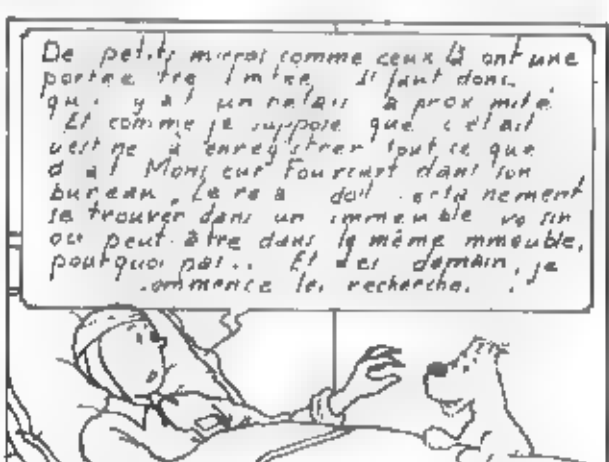 De petits micros comme ceux là ont une
portée très limitée. Il faut donc
qu'il y ait un relais à proximité.
Et comme je suppose que c'était
destiné à enregistrer tout ce que
disait Monsieur Fourcart dans son
bureau, Le relais doit certainement
se trouver dans un immeuble voisin
ou peut-être dans le même immeuble,
pourquoi pas.. Et dès demain, je
commence les recherches.